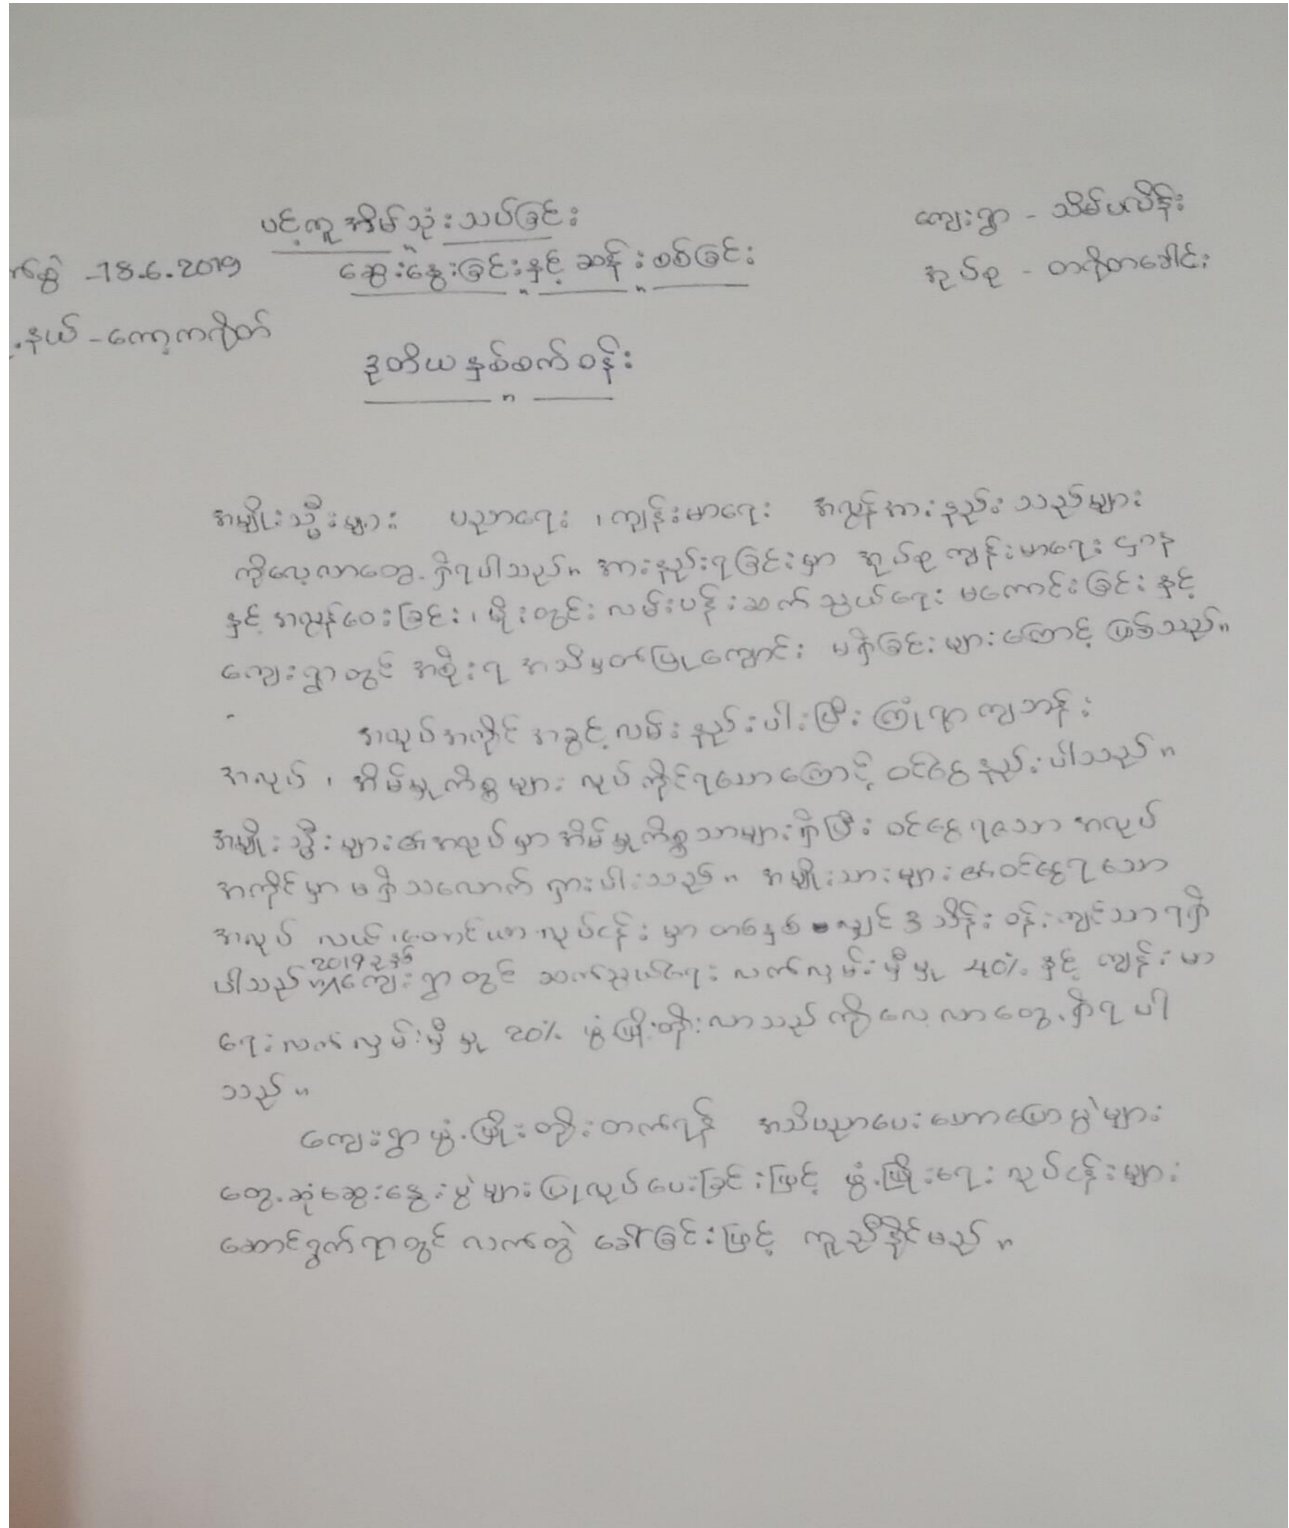 ပင့်ကူအိမ်သုံးသပ်ခြင်း
ကျေးရွာ - သိမ်ပလိန်း
ရက်စွဲ - 18.6.2019
ဆွေးနွေးခြင်းနှင့် ဆန်းစစ်ခြင်း
အုပ်စု - တလိုတခေါင်း
နယ် - ကော့ကရိတ်
ဒုတိယနှစ်စက်ဝန်း
အမျိုးသ္မီးများ ပညာရေး ၊ ကျန်းမာရေး အလွန်အားနည်းသည်များ
ကိုလေ့လာတွေ့ရှိရပါသည်။ အားနည်းရခြင်းမှာ အုပ်စုကျန်းမာရေးဌာန
နှင့် အလွန်ဝေးခြင်း ၊ မိုးတွင်း လမ်းပန်းဆက်သွယ်ရေး မကောင်းခြင်း နှင့်
ကျေးရွာတွင် အစိုးရ အသိမှတ်ပြုကျောင်း မရှိခြင်းများကြောင့် ဖြစ်သည်။
အလုပ်အကိုင် အခွင့်လမ်းနည်းပါးပြီး ကြုံရာကျဘန်း
အလုပ် ၊ အိမ်မှုကိစ္စများ လုပ်ကိုင်ရသောကြောင့် ဝင်ငွေနည်းပါသည်။
အမျိုးသ္မီးများ၏အလုပ်မှာ အိမ်မှုကိစ္စသာများရှိပြီး ဝင်ငွေရသော အလုပ်
အကိုင်မှာ မရှိသလောက် ရှားပါးသည်။ အမျိုးသားများ၏ဝင်ငွေရသော
အလုပ် လယ် ၊ တောင်ယာ လုပ်ငန်းမှာ တနှစ် လျှင် ၃ သိန်း ဝန်းကျင်သာ ရရှိ
ပါသည်။ 2019 ခုနှစ် ကျေးရွာတွင် ဆက်သွယ်ရေး လက်လှမ်းမှီမှု 40% နှင့် ကျန်းမာ
ရေးလက်လှမ်းမှီမှု 20% ဖွံ့ဖြိုးတိုးလာသည်ကိုလေ့လာတွေ့ရှိရပါ
သည်။
ကျေးရွာဖွံ့ဖြိုးတိုးတက်ရန် အသိပညာပေးဟောပြောပွဲများ
တွေ့ဆုံဆွေးနွေးပွဲများပြုလုပ်ပေးခြင်းဖြင့် ဖွံ့ဖြိုးရေး လုပ်ငန်းများ
ဆောင်ရွက်ရာတွင် လက်တွဲ ခေါ်ခြင်းဖြင့် ကူညီနိုင်မည်။